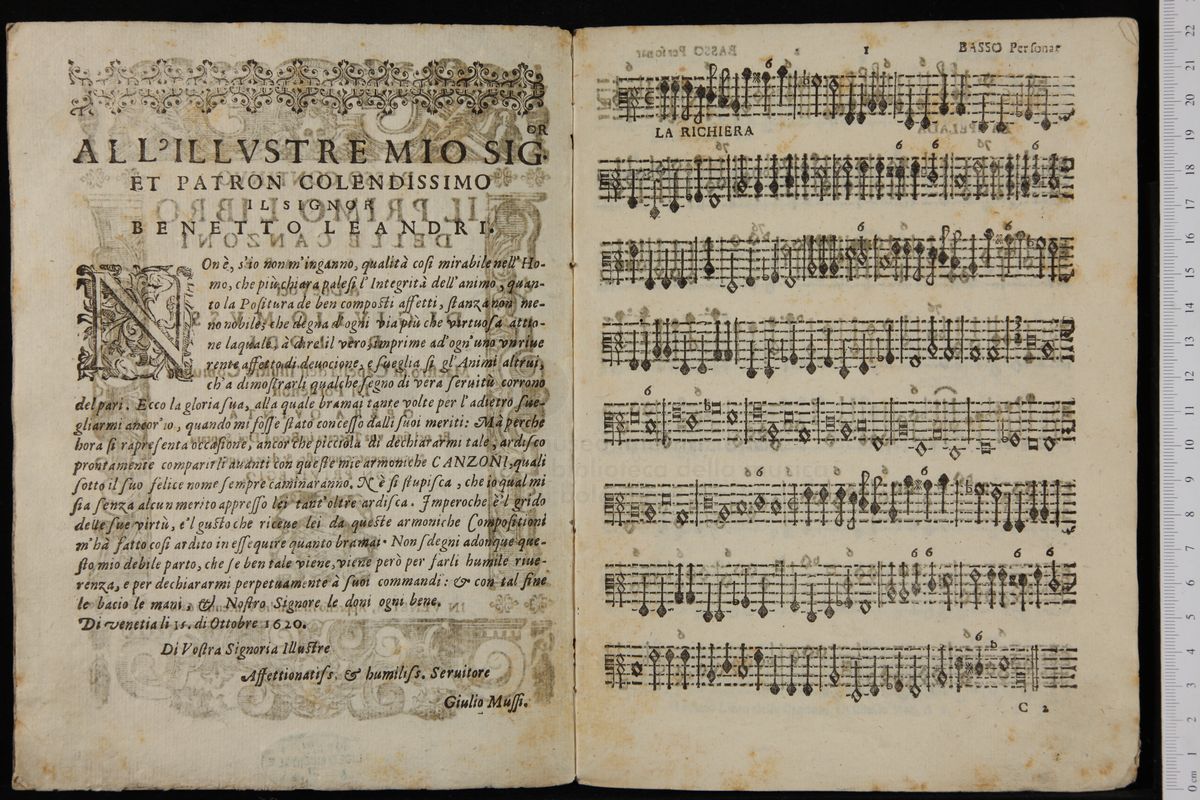 ALL'ILLVSTRE MIO SIG.OR
ET PATRON COLENDISSIMO
IL SIGNOR
BENETTO LEANDRI.
NOn è, s'io non m'inganno, qualità così mirabile nell'Ho-
mo, che più chiara palesi l'Integrità dell'animo, quan-
to la Positura de ben composti affetti, stanza non me-
no nobile, che degna d'ogni via più che virtuosa attio-
ne laquale, à dire il vero, imprime ad'ogn'uno vn riue
rente affetto di deuocione, e sueglia sì gl'Animi altrui,
ch'a dimostrarli qualche segno di vera seruitù corrono
del pari. Ecco la gloria sua, alla quale bramai tante volte per l'adietro sue-
gliarmi ancor'io, quando mi fosse stato concesso dalli suoi meriti: Mà perche
hora si rapresenta occasione, ancor che picciola di dechiararmi tale, ardisco
prontamente comparirli auanti con queste mie armoniche CANZONI, quali
sotto il suo felice nome sempre caminaranno. N'è si stupisca, che io qual mi
sia senza alcun merito appresso lei tant'oltre ardisca. Imperoche è'l grido
delle sue virtù, e'l gusto che riceue lei da queste armoniche Compositioni
m'hà fatto così ardito in essequire quanto bramai. Non sdegni adonque que-
sto mio debile parto, che se ben tale viene, viene però per farli humile riue-
renza, e per dechiararmi perpetuamente à suoi commandi: & con tal fine
le bacio le mani, & Nostro Signore le doni ogni bene.
Di venetia li 15. di Ottobre 1620.
Di Vostra Signoria Illustre
Affettionatiss. & humiliss. Seruitore
Giulio Mussi.
1 BASSO Per sonar
LA RICHIERA
C 2